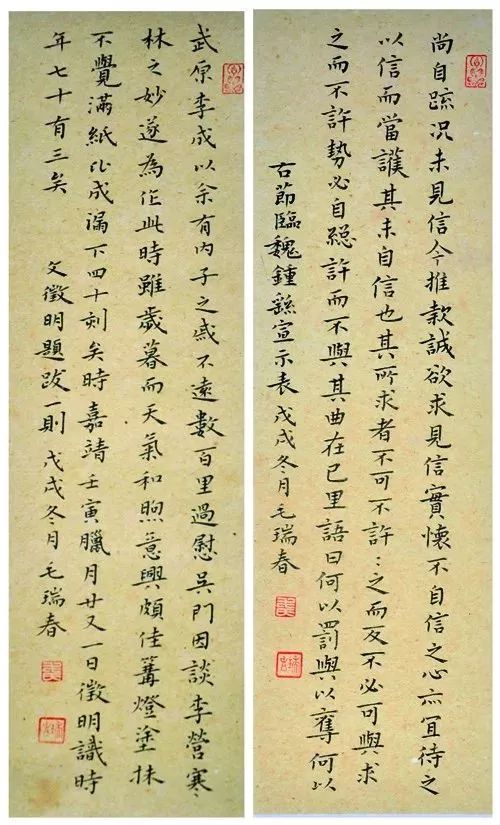 尚自疏況未見信今推款誠欲求見信實懷不自信之心亦宜待之
以信而當護其未自信也其所求者不可不許：之而反不必可與求
之而不許勢必自絕許而不與其曲在已里語曰何以罰與以奪何以
古節臨魏鍾繇宣示表戊戌冬月毛瑞春
武原李成以余有內子之戚不遠數百里過慰吳門因談李營寒
林之妙遂為作此時雖歲暮而天氣和煦意興頗佳篝燈塗抹
不覺滿紙比成漏下四十刻矣時嘉靖壬寅臘月廿又一日徵明識時
年七十有三矣 文徵明題跋一則 戊戌冬月毛瑞春